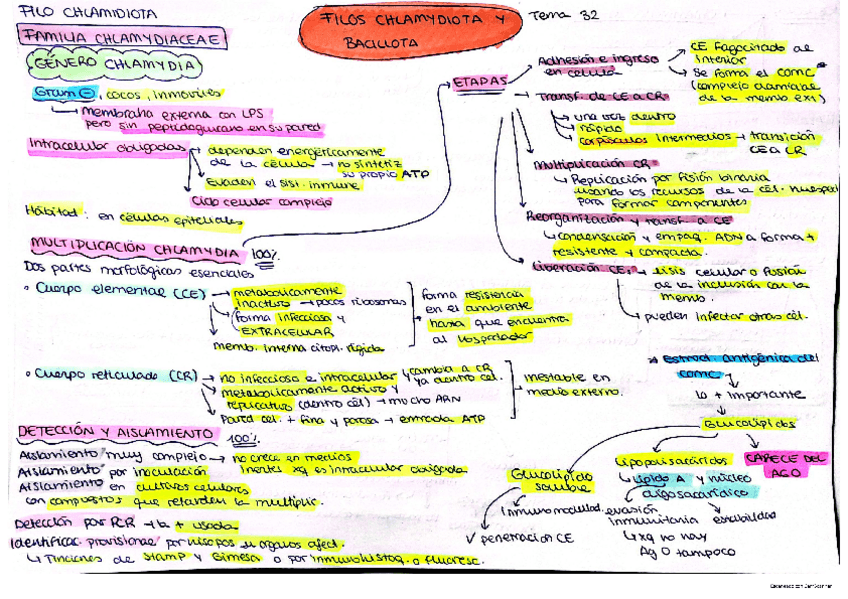 FILO CHLAMIDIOTA
FAMILIA CHLAMYDIACEAE
GÉNERO CHLAMYDIA
FILOS CHLAMYDIOTA Y
BACILLOTA
Tema 32
Gram ⊖, cocos, inmoviles
↳ membraña externa con LPS
pero sin peptidoglucano en su pared
Intracelular obligados → dependen energéticamente
de la célula → no sintetiz
su propio ATP
Evaden el sist. inmune
Ciclo celular complejo
Hábitad: en células epiteliales
MULTIPLICACIÓN CHLAMYDIA 100%
Dos partes morfológicas esenciales
• Cuerpo elemental (CE) → metabolicamente
inactivo → pocos ribosomas
forma infecciosa y
EXTRACELULAR
memb. interna citopl. rígida
forma resistencia
en el ambiente
hasta que encuentra
al hospedador
• Cuerpo reticulado (CR) → no infeccioso e intracelular
y cambia a CR
ya dentro cél.
metabolicamente activo y
replicativo (dentro cél) → mucho ARN
Pared cél. + fina y porosa → entrada ATP
inestable en
medio externo.
DETECCIÓN Y AISLAMIENTO 100%
Aislamiento muy complejo → no crece en medios
inertes xq es intracelular obligada
Aislamiento por inoculación
Aislamiento en cultivos celulares
con compuestos que retarden la multiplic.
Detección por PCR → la + usada
Identificac. provisional por hisopos u organos afect.
↳ Tinciones de Stamp y Gimesa o por inmunohistoq. o fluoresc.
ETAPAS
Adhesión e ingreso
en célula
CE fagocitado al
interior
Se forma el COMC
(complejo
de la memb ext)
→ Transf. de CE a CR
una vez dentro
rápido
corpúsculos intermedios → transición
CE a CR
Multiplicación CR
↳ Replicación por fisión binaria
usando los recursos de la cél. huesped
para formar componentes
Reorganización y transf. a CE
↳ condensación y empaq. ADN a forma +
resistente y compacta.
Liberación CE: → lisis celular o fusión
de la inclusión con la
memb.
→ pueden infectar otras cél.
* estruct. antigénica del
COMC
lo + importante
Glucolípidos
Glucolípido
soluble
Inmunomodulad. evasión
inmunitaria
✓ penetración CE
Lipopolisacáridos
↳ Lípido A y núcleo
oligosacarídico
estabilidad
↳ xq no hay
Ag O tampoco
CARECE DEL
AG O